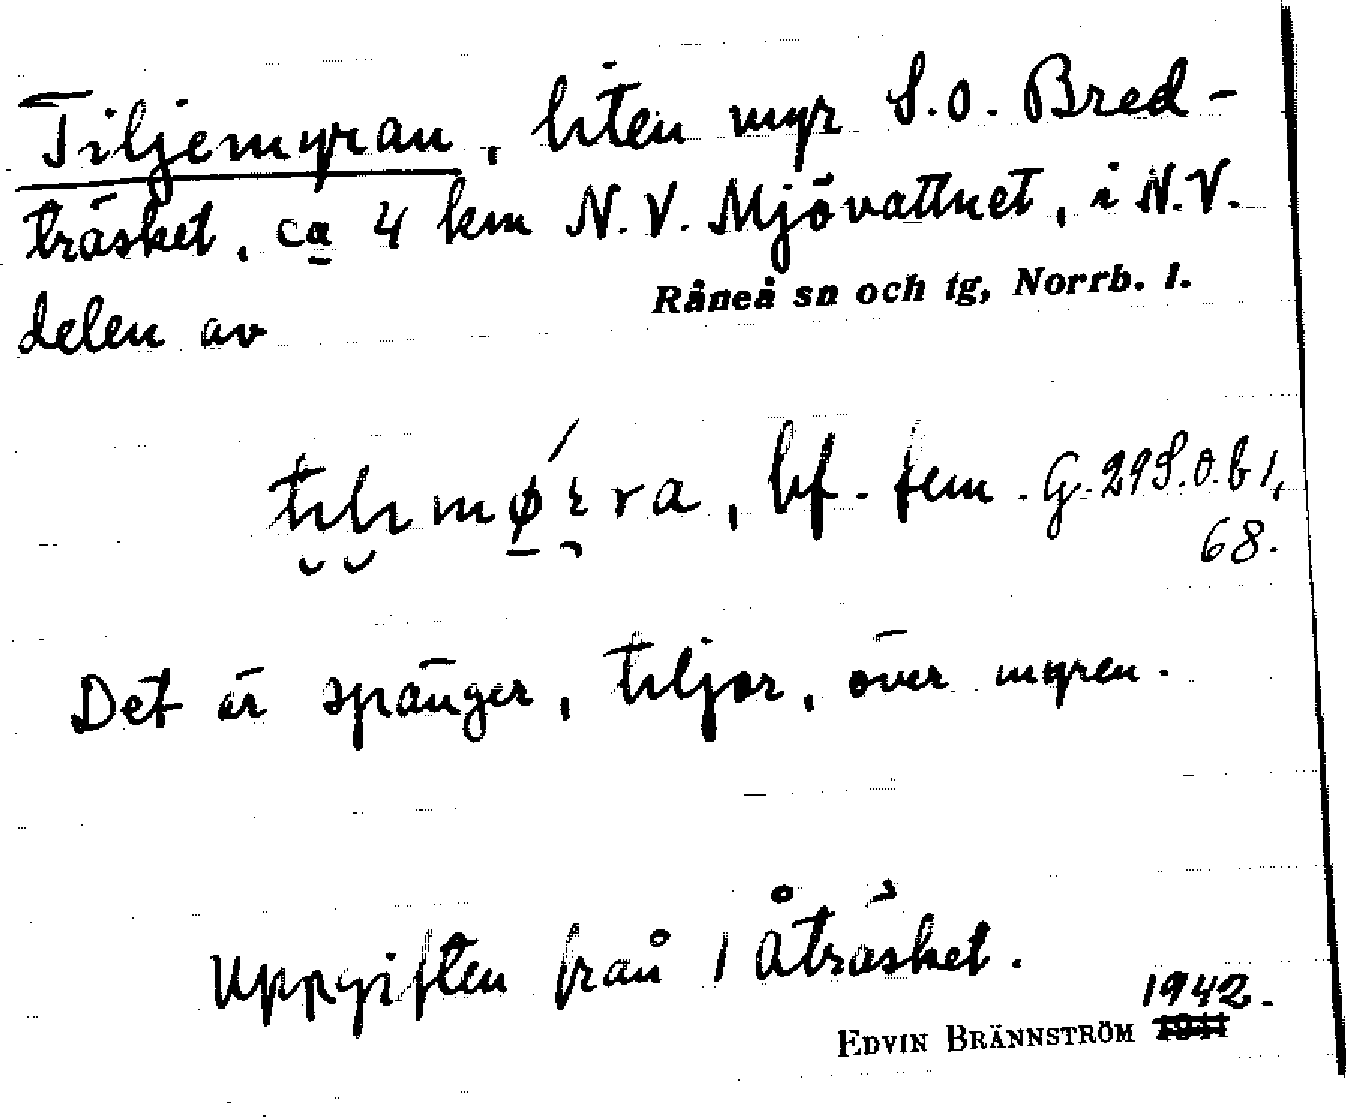 Tiljemyran, liten myr S.O. Bred-
träsket, ca 4 km N.V. Mjövattnet, i N.V.
Råneå sn och tg, Norrb. l.
delen av
bf. fem. G. 29 S.O. b 1,
68.
Det är spänger, tiljor, över myren.
Uppgiften från 1 Åträsket.
1942.
EDVIN BRÄNNSTRÖM 1941